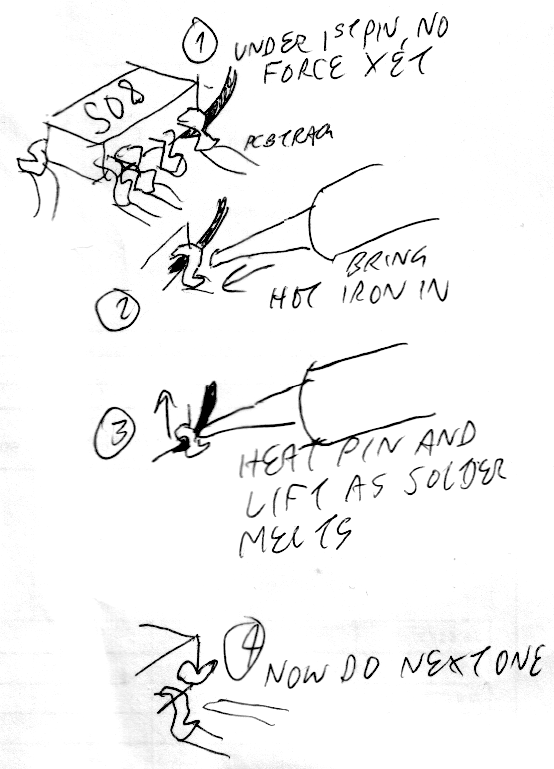 1 UNDER 1ST PIN, NO
FORCE YET
SO8
PCB TRACK
2
BRING
HOT IRON IN
3
HEAT PIN AND
LIFT AS SOLDER
MELTS
4 NOW DO NEXT ONE